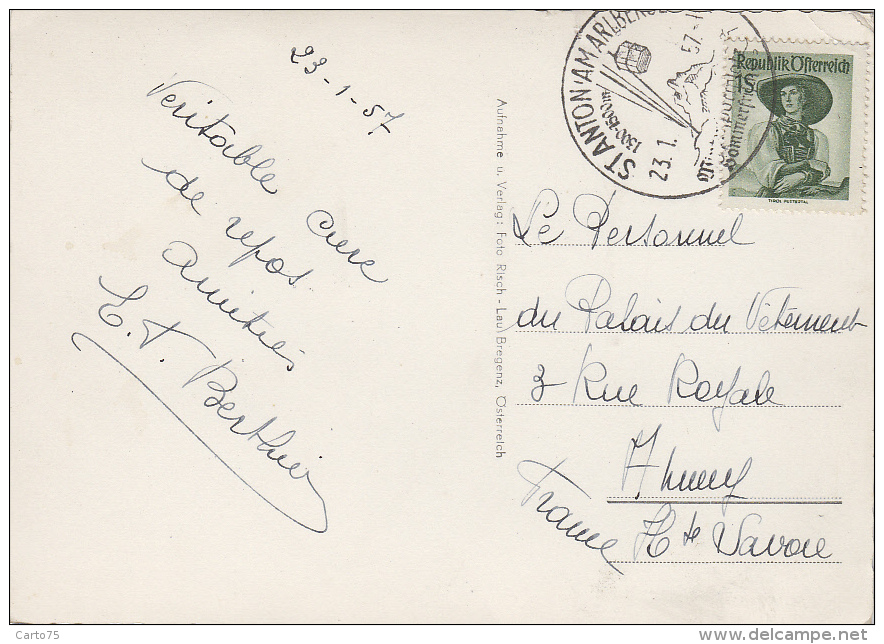 23-1-57
Veritable cure
de repos.
Amitiés
E. T. Berthier
Aufnahme u. Verlag: Foto Risch - Lau Bregenz, Österreich
ST ANTON AM ARLBERG
1300-1500m
23.1.
57.-1
Republik Österreich
1S
TIROL PUSTERTAL
Le Personnel
du Palais du Vêtement
3 Rue Royale
Annecy
Hte Savoie
France
Carto75
www.delcampe.net